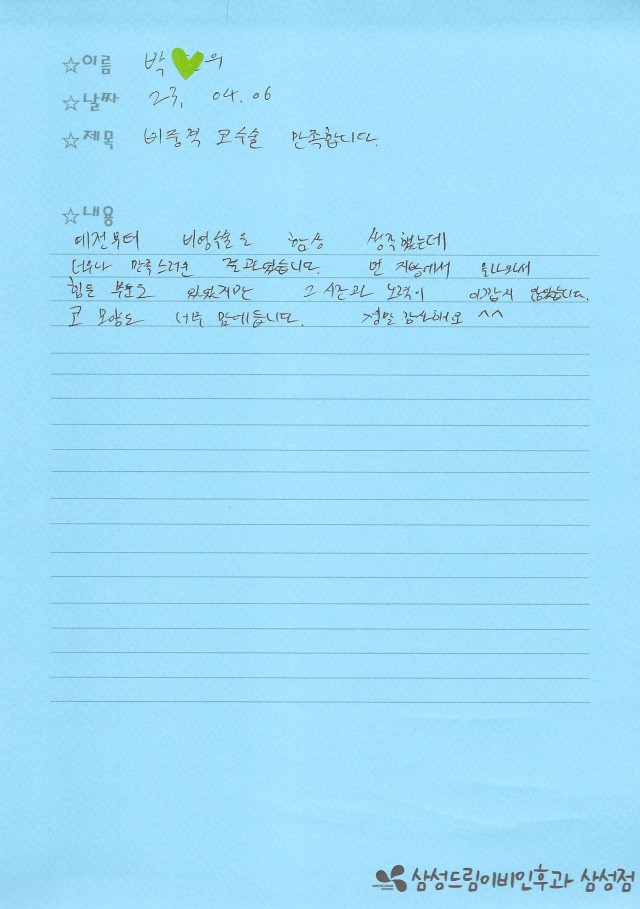 ☆이름 박 우
☆날짜 23, 04. 06
☆제목 비중격 코수술 만족합니다.
☆내용
예전부터 비염수술을 항상 생각했는데
너무나 만족스러운 결과였습니다. 먼 지방에서 올라와서
힘든 부분도 있었지만 그 시간과 노력이 아깝지 않았습니다.
코 모양도 너무 맘에듭니다. 정말 감사해요 ^^
삼성드림이비인후과 삼성점